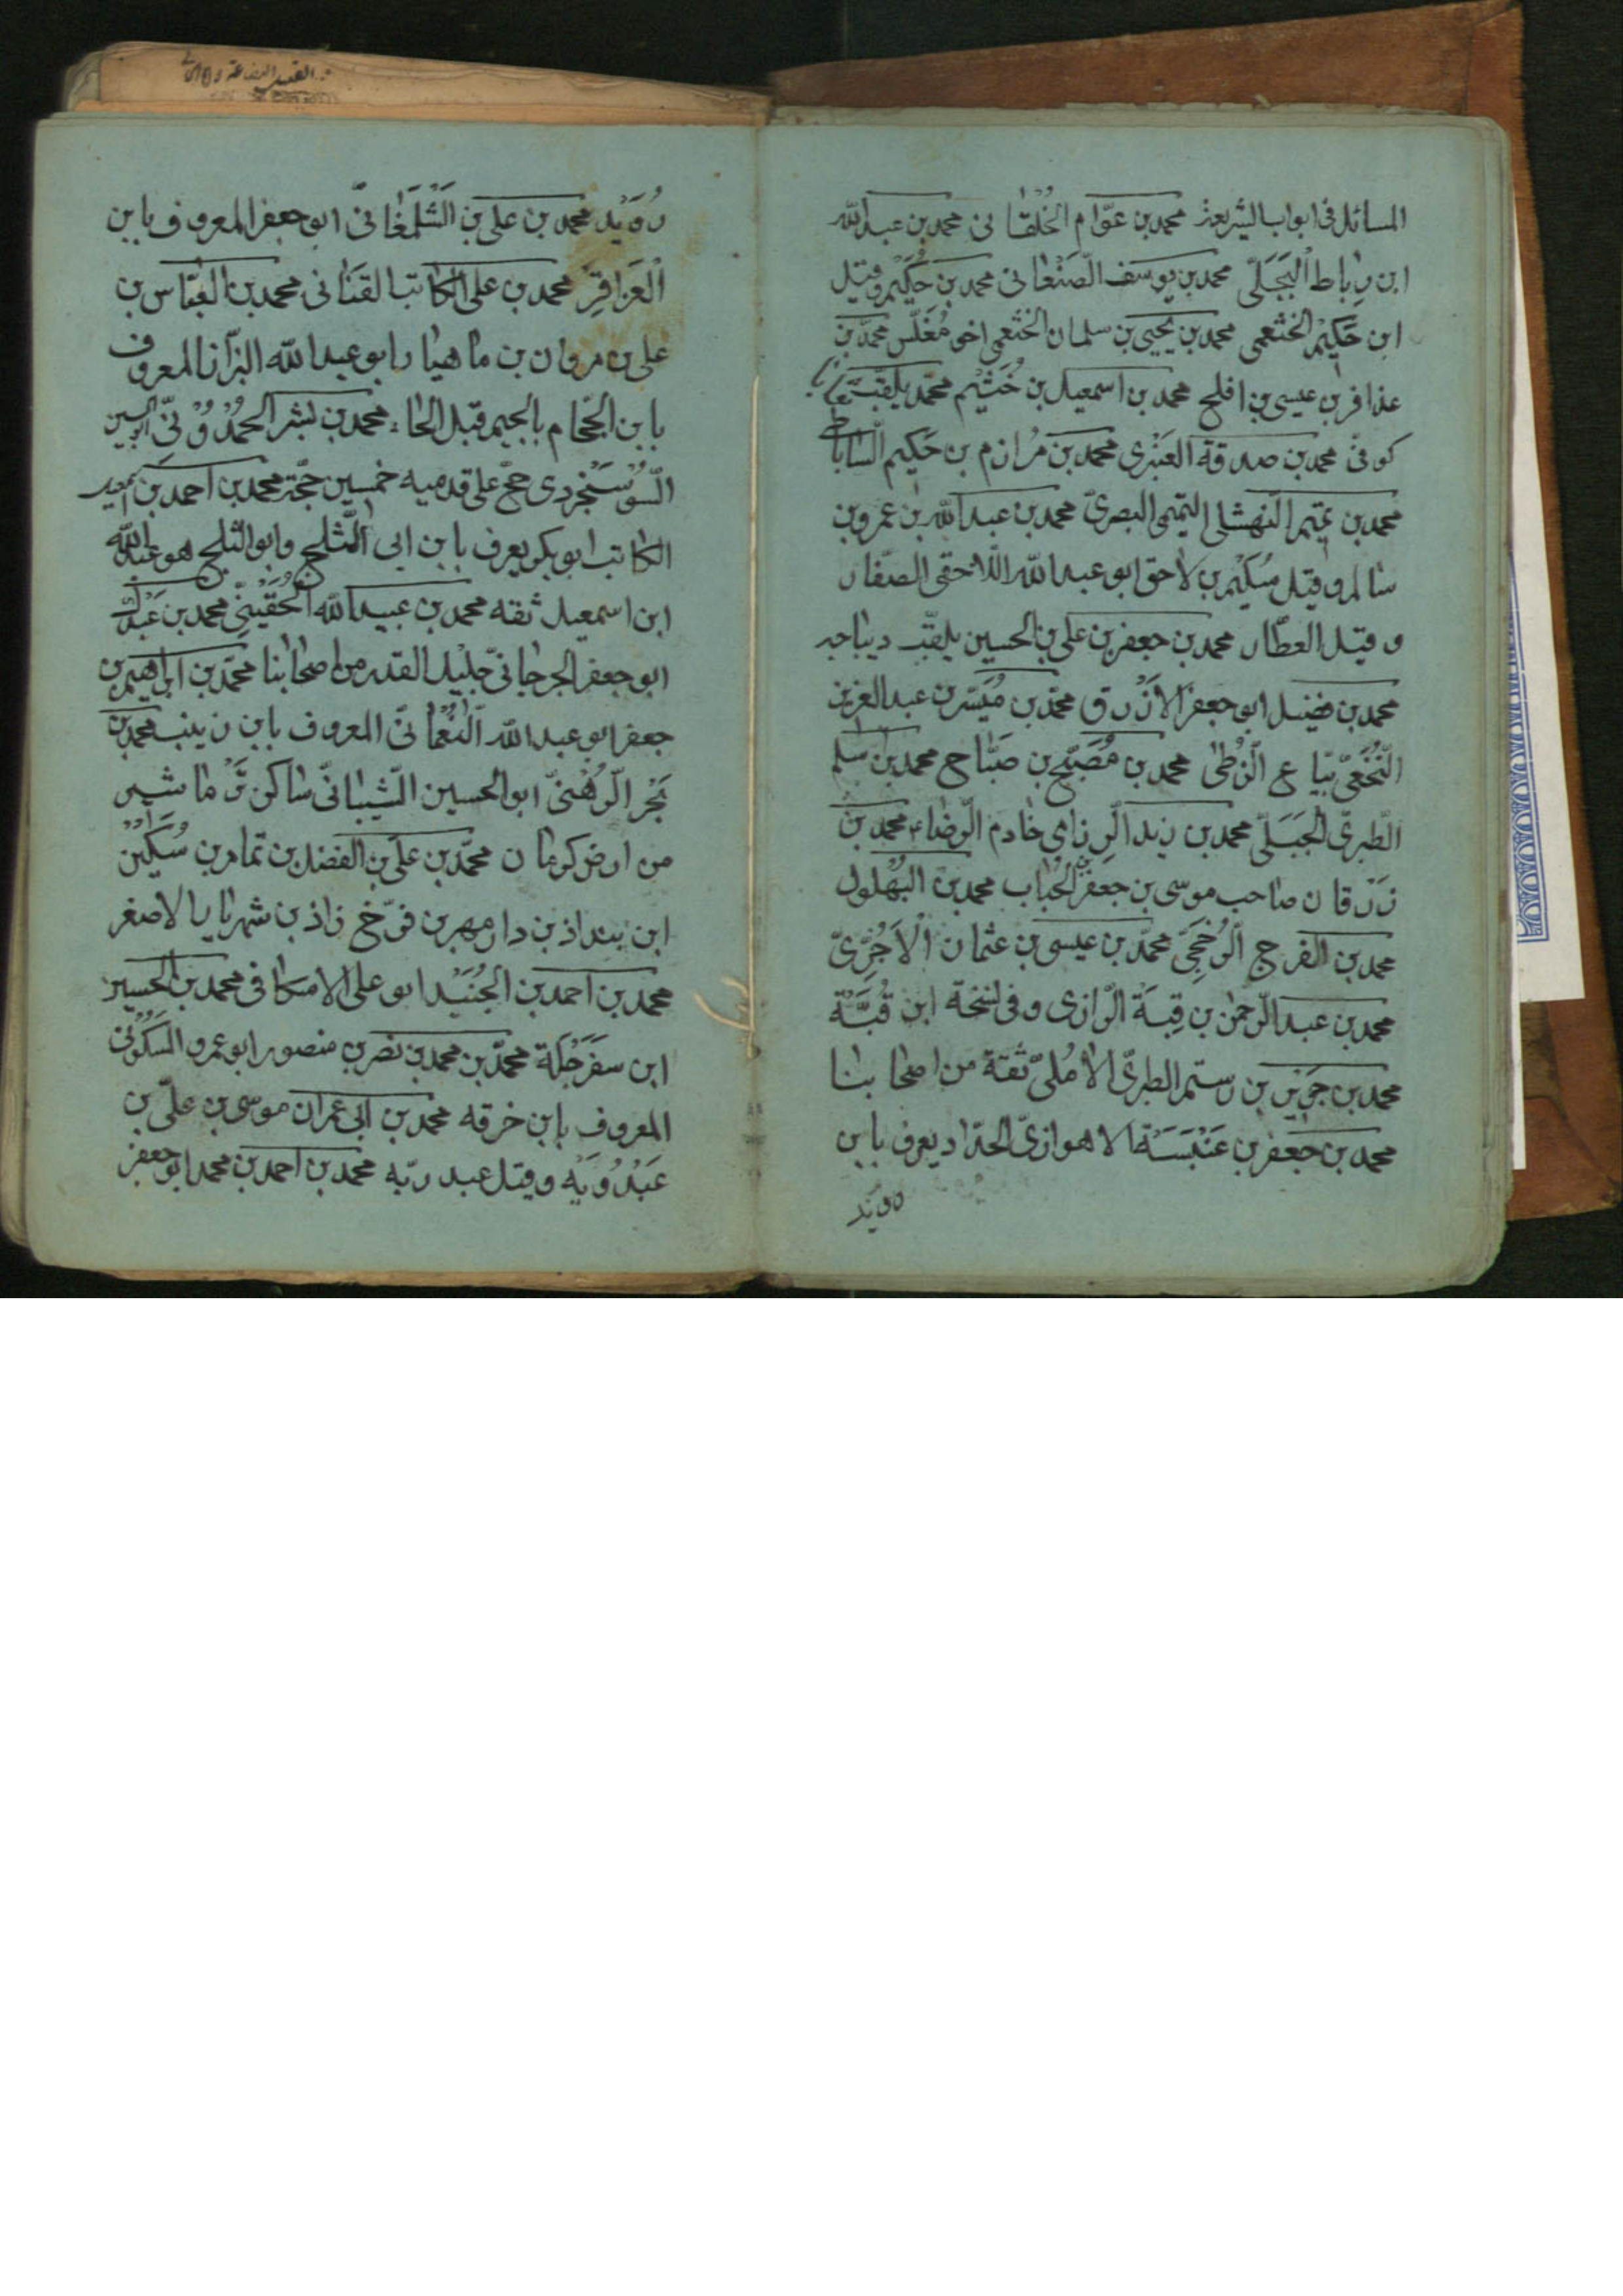 المسائل فى ابواب الشريعة محمد بن عوّام الخُلْقانى محمد بن عبد الله
ابن رِباط البَجَلّى محمد بن يوسف الصَنْعانى محمد بن حُكَيْم وقيل
ابن حَكيْم الخثعمى محمد بن يحيى بن سلمان الخثعمى اخو مُغَلّس محمد بن
عذافر بن عيسى بن افلح محمد بن اسمعيل بن خُثَيْم محمد يلقب
كوفىّ محمد بن صدقة العَنْبرى محمد بن مُران م بن حَكيم الساباطى
محمد بن تميم النهشلى التميمى البصرىّ محمد بن عبد الله بن عمرو بن
سالم وقيل سُكَيْم بن لاحق ابو عبد الله اللاحقى الصفّار
وقيل العطّار محمد بن جعفر بن على بن الحسين يلقّب ديباجه
محمد بن فضيل ابو جعفر الازْرق محمّد بن مُيَسّر بن عبد العزيز
النَّخَعىّ بيّاع الزُطّى محمد بن مُصَبّح بن صَبّاح محمد بن اسلم
الطبرىّ الجَبَلىّ محمد بن زيد الرزامى خادم الرضاء محمد بن
زَرْقان صاحب موسى بن جعفر الحُباب محمد بن البُهْلول
محمد بن الفرج الرُخجَىّ محمّد بن عيسى بن عثمان الآجُرّىّ
محمد بن عبد الرحمن بن قِبَة الرازى وفى نسخة ابن قُبَّة
محمد بن جَرير بن رستم الطبرىّ الآمُلىّ ثقة من اصحابنا
محمد بن جعفر بن عَنْبَسَة الاهوازىّ الحدّاد يعرف بابن
رويد
رُوَيْد محمد بن على بن الشَلْمَغانىّ ابو جعفر المعروف بابن
العَزاقِر محمد بن على الكاتب القَنانى محمد بن العبّاس بن
على بن مروان بن ماهيار ابو عبد الله البزّاز المعروف
بابن الجحّام بالجيم قبل الحاء محمد بن بشر الحُمْدُوْنىّ ابو الحسين
السُوْسَنْجردى حجّ على قدميه خمسين حجّة محمد بن احمد بن اسمعيل
الكاتب ابو بكر يعرف بابن ابى الثلج وابو الثلج هو عبد الله
ابن اسمعيل ثقه محمد بن عبيد الله الحُقَيْنِى محمد بن عَبْدك
ابو جعفر الجرجانىّ جليل القدر من اصحابنا محمّد بن ابراهيم بن
جعفر ابو عبد الله النُعْمانىّ المعروف بابن زينب محمد بن
بَحْر الرُهْنىّ ابو الحسين الشيبانىّ ساكن نَرْماشير
من ارض كرمان محمّد بن علىّ بن الفضل بن تمام بن سُكَيْن
ابن بنداذ بن دارمهر بن فرّخ زاذ بن شهريار الاصغر
محمد بن احمد بن الجُنَيْد ابو على الاسكافى محمد بن الحسين
ابن سفَرْجَلة محمّد بن محمد بن نصر بن منصور ابو عمرو السَكُونى
المعروف بابن خرقه محمد بن ابى عمران موسى بن علىّ بن
عَبْدُوَيْه وقيل عبد ربّه محمد بن احمد بن محمد ابو جعفر